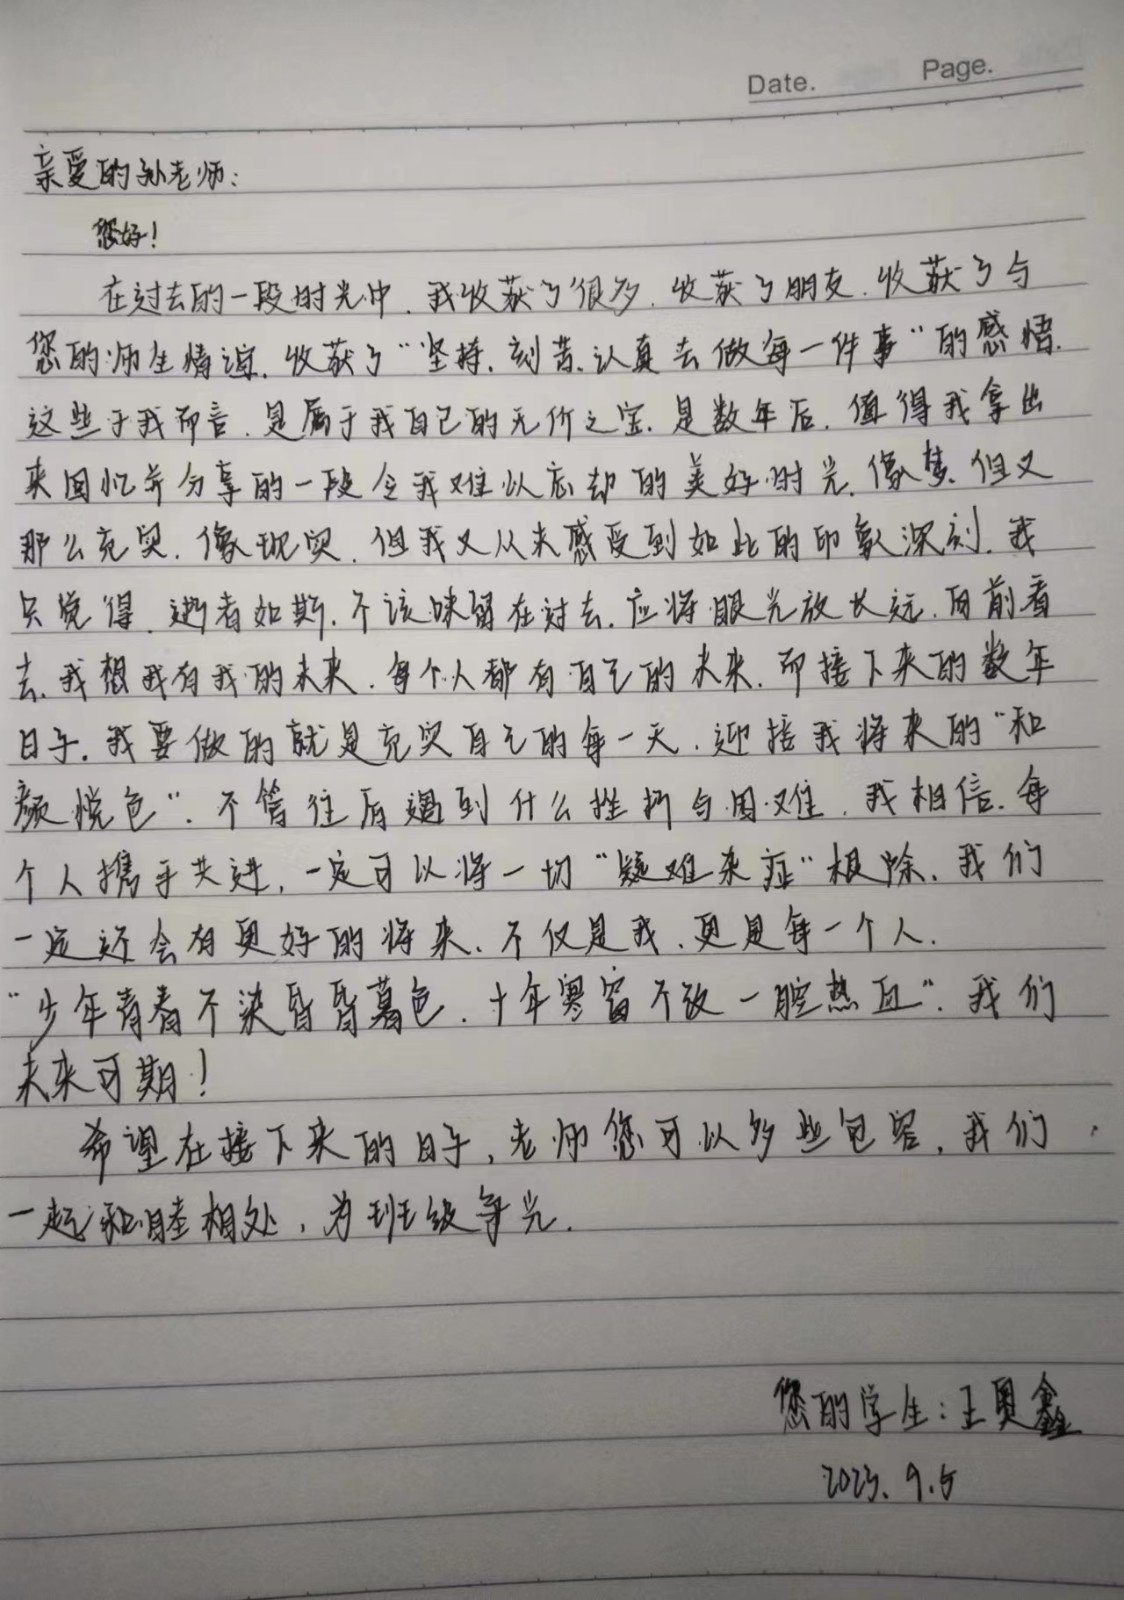 Date. Page.
亲爱的孙老师:
您好!
在过去的一段时光中,我收获了很多,收获了朋友,收获了与
您的师生情谊,收获了“坚持,刻苦,认真去做每一件事”的感悟.
这些于我而言,是属于我自己的无价之宝,是数年后,值得我拿出
来回忆并分享的一段令我难以忘却的美好时光,像梦,但又
那么充实,像现实,但我又从未感受到如此的印象深刻,我
只觉得,逝者如斯,不该留在过去,应将眼光放长远,向前看
去,我想我有我的未来,每个人都有自己的未来,而接下来的数年
日子,我要做的就是充实自己的每一天,迎接我将来的“和
颜悦色”.不管往后遇到什么挫折与困难,我相信,每
个人携手共进,一定可以将一切“疑难杂症”根除,我们
一定还会有更好的将来,不仅是我,更是每一个人.
“少年青春不染昏昏暮色,十年寒窗不改一腔热血”.我们
未来可期!
希望在接下来的日子,老师您可以多些包容,我们
一起和睦相处,为班级争光.
您的学生:王奥鑫
2023.9.5